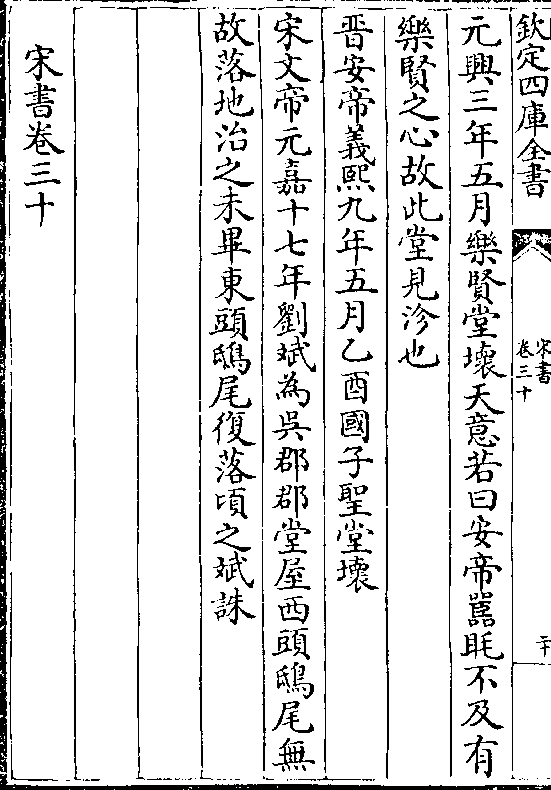 欽定四庫全書
宋書
卷三十
二十
元興三年五月樂賢堂壞天意若曰安帝嚚眊不及有
樂賢之心故此堂見沴也
晋安帝義熙九年五月乙酉國子聖堂壞
宋文帝元嘉十七年劉斌為吳郡郡堂屋西頭鴟尾無
故落地治之未畢東頭鴟尾復落頃之斌誅
宋書卷三十